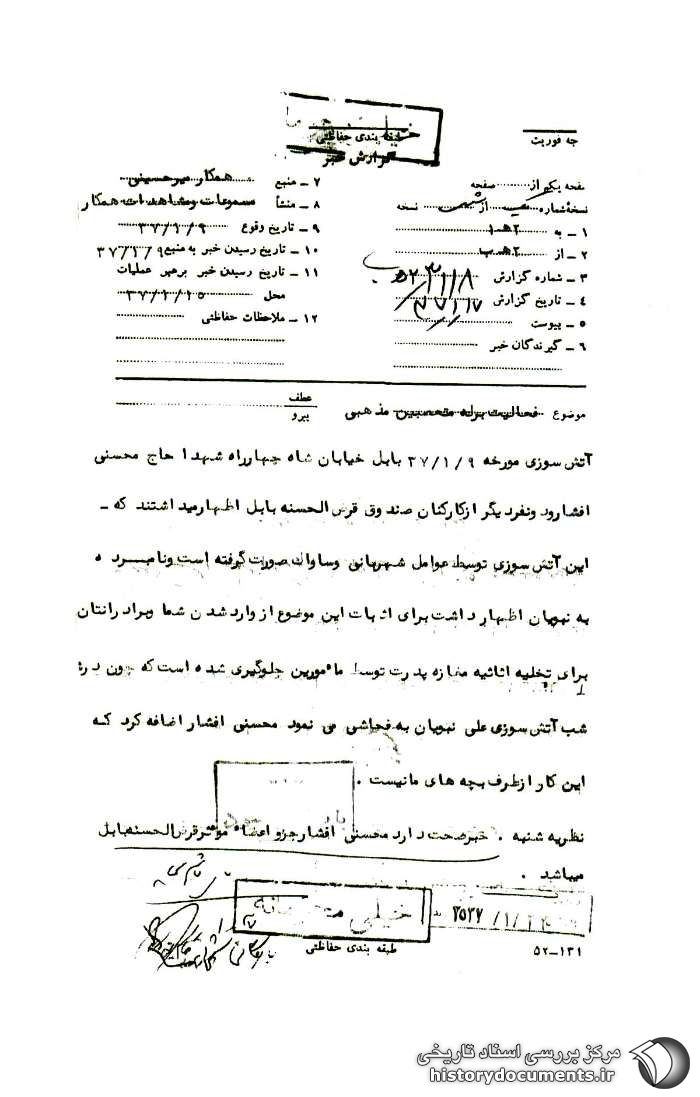 خیلی محرمانه
طبقه بندی حفاظتی
گزارش خبر
جه فوریت
صفحه یکم از صفحه
نسخهٔ شماره از نسخه
۱ – به ۱هـ۲
۲ – از ۲هـ ب
۳ – شماره گزارش
۴ – تاریخ گزارش
۵ – پیوست
۶ – گیرندگان خبر
۷ – منبع همکار میرحسینی
۸ – منشأ مسموعات ومشاهدات همکار
۹ – تاریخ وقوع ۳۷/۱/۹
۱۰ – تاریخ رسیدن خبر به منبع ۳۷/۱/۹
۱۱ – تاریخ رسیدن خبر برهبر عملیات
محل ۳۷/۱/۱۵
۱۲ – ملاحظات حفاظتی
موضوع فعالیت برله متعصبین مذهبی
عطف
پیرو
آتش سوزی مورخه ۳۷/۱/۹ بابل خیابان شاه چهارراه شهدا حاج محسنی
افشارودونفردیگر ازکارکنان صندوق قرض الحسنه بابل اظهارمیداشتند که –
این آتش سوزی توسط عوامل شهربانی وساواك صورت گرفته است ونامبرده
به نبویان اظهار داشت برای اثبات این موضوع از وارد شدن شما وبرادرانتان
برای تخلیه اثاثیه مغازه پدرت توسط مأمورین جلوگیری شده است که چون در
شب آتش سوزی علی نبویان به فحاشی می نمود محسنی افشار اضافه کرد که
این کار ازطرف بچه های مانیست .
نظریه شنبه . خبرصحت دارد محسنی افشارجزو اعضاء موثرقرض الحسنه بابل
میباشد .
خیلی محرمانه
طبقه بندی حفاظتی
۲۵۳۷/۱/۲۴
۵۲–۱۳۱
مرکز بررسی اسناد تاریخی
historydocuments.ir